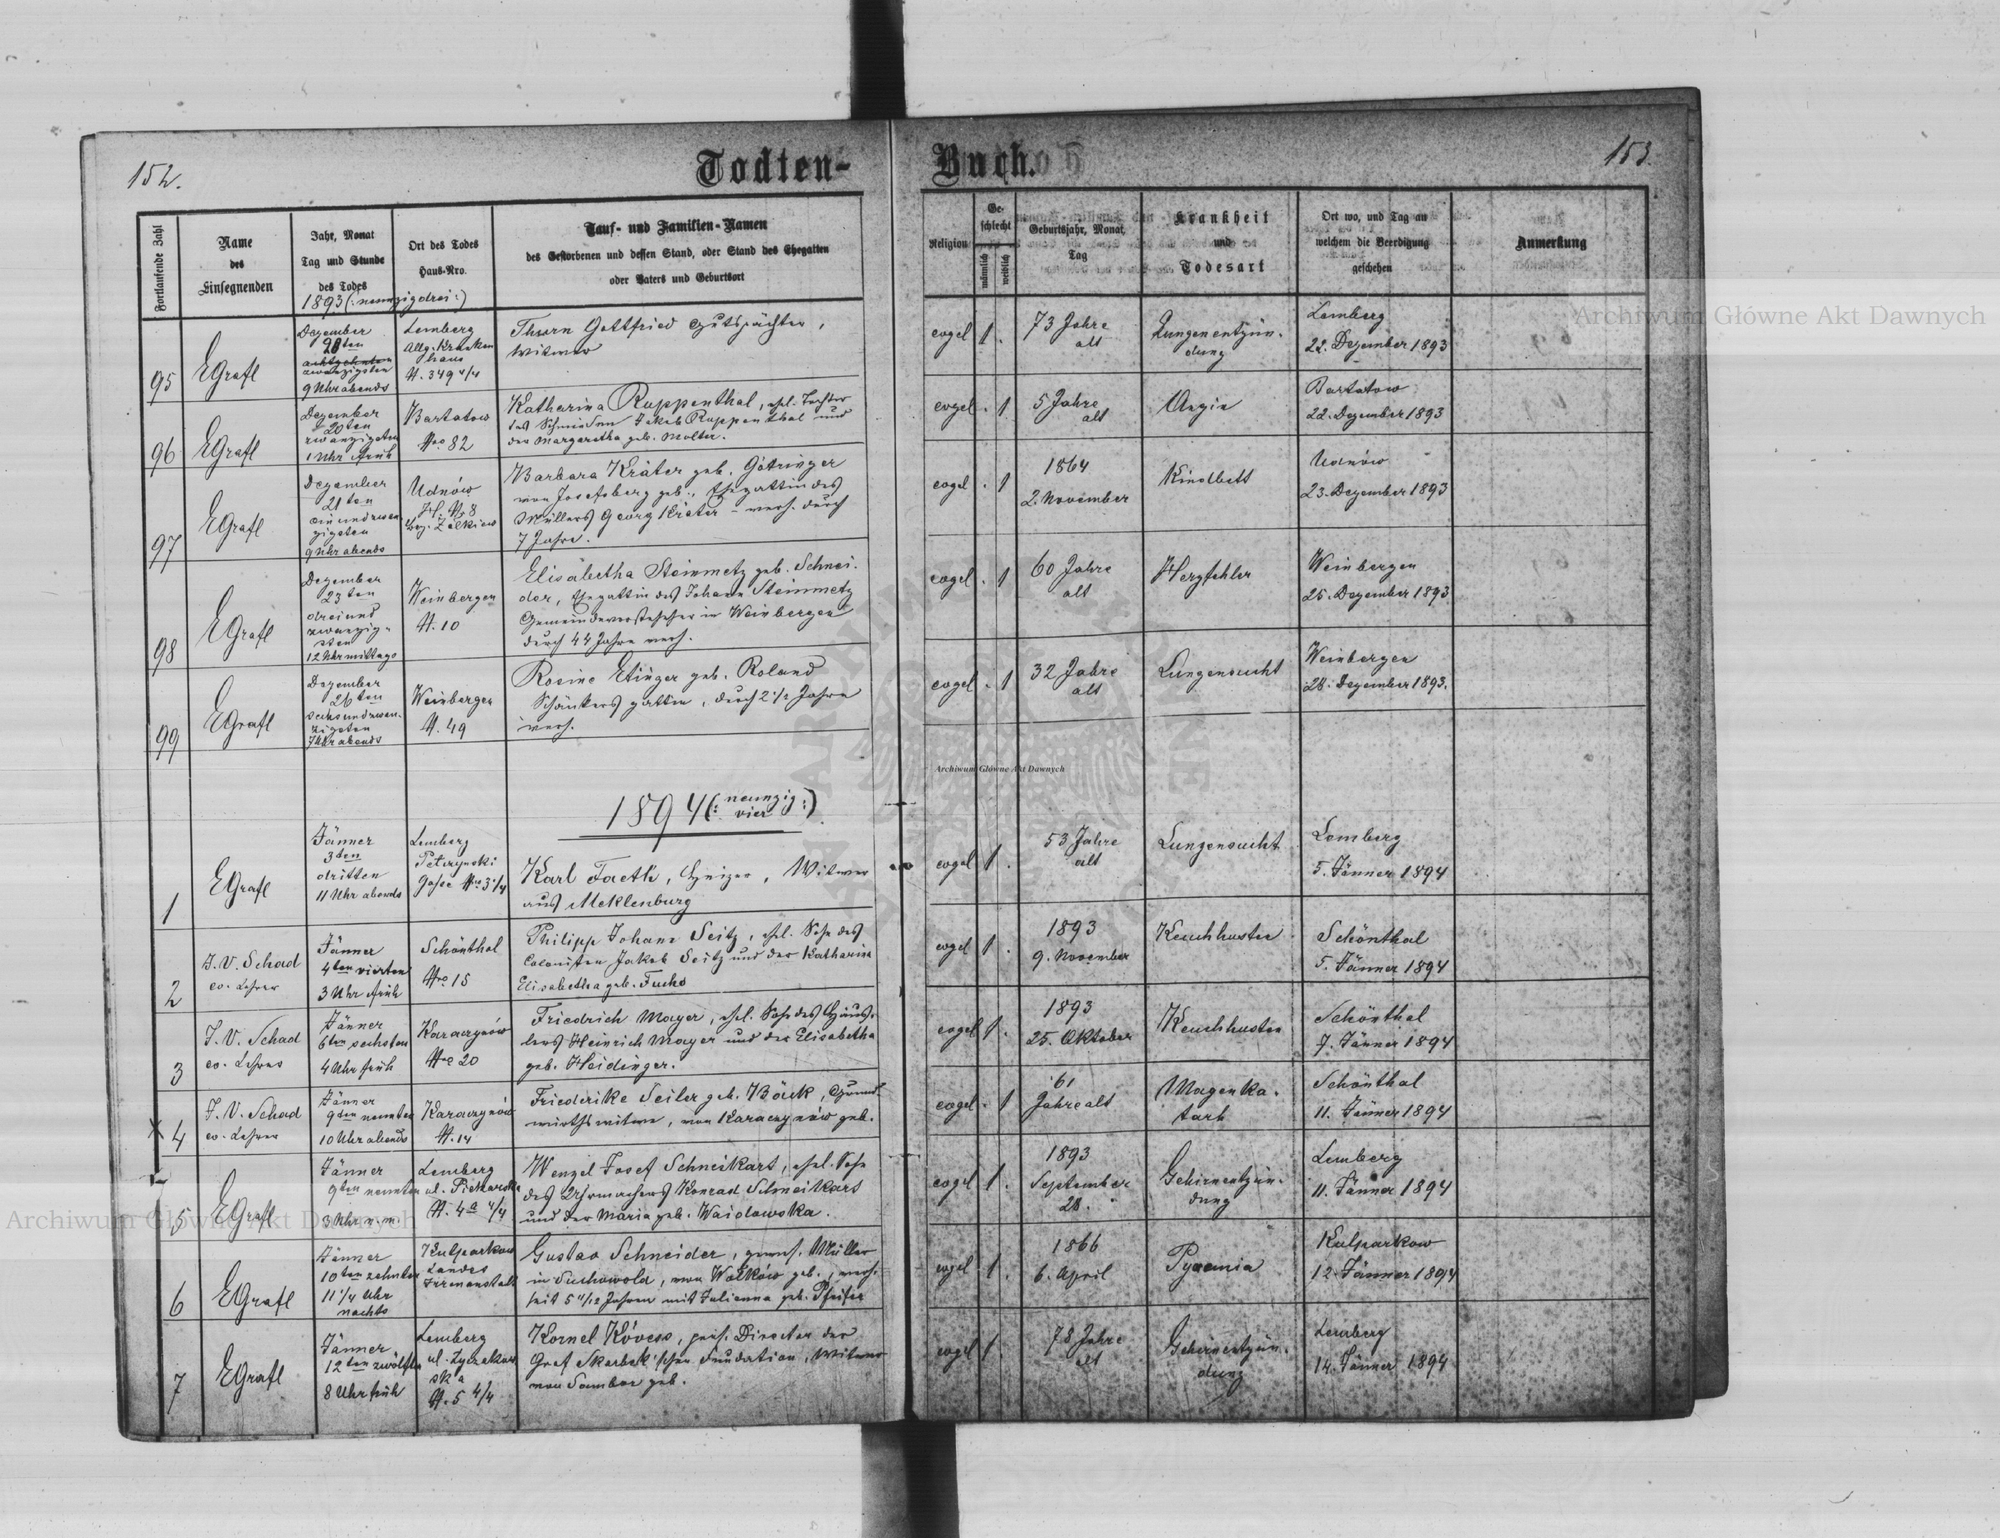 152.
Todten-
Buch.
153.
Fortlaufende Zahl
Name
des
Einsegnenden
Jahr, Monat
Tag und Stunde
des Todes
Ort des Todes
Haus-Nro.
Tauf- und Familien-Namen
des Gestorbenen und dessen Stand, oder Stand des Ehegatten
oder Vaters und Geburtsort
Religion
Ge-
schlecht
männlich
weiblich
Geburtsjahr, Monat,
Tag
Krankheit
und
Todesart
Ort wo, und Tag an
welchem die Beerdigung
geschehen
Anmerkung
1893 (: neunzigdrei :)
95
EGrafl
Dezember
20ten
zwanzigsten
9 Uhr abends
Lemberg
Allg. Kranken
haus
N. 349 4/4
Thurn Gottfried Gutspächter,
Witwer
evgel
1
.
73 Jahre
alt
Lungenentzün-
dung
Lemberg
22. Dezember 1893
96
EGrafl
Dezember
20ten
zwanzigsten
1 Uhr früh
Bartatow
Nro 82
Katharina Ruppenthal, ehel. Tochter
des Schmieden Jakob Ruppenthal und
der Margaretha geb. Molter.
evgel
.
1
5 Jahre
alt
Angin
Bartatow
22. Dezember 1893
97
EGrafl
Dezember
21ten
einundzwan-
zigsten
9 Uhr abends
Udnów
H. No 8
Bez. Zołkiew
Barbara Kräter geb. Götzinger
von Josefsberg geb., Ehegattin des
Müllers Georg Kräter - verh. durch
7 Jahre.
evgel
.
1
1864
2. November
Kindbett
Udnów
23. Dezember 1893
98
EGrafl
Dezember
23ten
dreiund
zwanzig-
sten
12 Uhr mittags
Weinbergen
N. 10
Elisabetha Steinmetz geb. Schnei-
der, Ehegattin des Johann Steinmetz
Gemeindevorsteher in Weinbergen
durch 44 Jahre verh.
evgel
.
1
60 Jahre
alt
Herzfehler
Weinbergen
25. Dezember 1893
99
EGrafl
Dezember
26ten
sechsundzwan-
zigsten
7 Uhr abends
Weinbergen
N. 49
Rosine Etinger geb. Roland
Schänkers gattin, durch 2 1/2 Jahre
verh.
evgel
.
1
32 Jahre
alt
Lungensucht
Weinbergen
28. Dezember 1893.
1894 (: neunzig
vier :)
1
EGrafl
Jänner
3ten
dritten
11 Uhr abends
Lemberg
Petczynski
Gasse Nro 3 1/4
Karl Faeth, Heizer, Witwer
aus Meklenburg
evgel
1
.
53 Jahre
alt
Lungensucht
Lemberg
5. Jänner 1894
2
J. V. Schad
ev. Lehrer
Jänner
4ten vierten
3 Uhr früh
Schönthal
Nro 15
Philipp Johann Seitz, ehel. Sohn des
Colonisten Jakob Seitz und der Katharina
Elisabetha geb. Fuchs
evgel
1
.
1893
9. November
Keuchhusten
Schönthal
5. Jänner 1894
3
J. V. Schad
ev. Lehrer
Jänner
6ten sechsten
4 Uhr früh
Karaczynów
Nro 20
Friedrich Mayer, ehel. Sohn des Häus-
lers Heinrich Mayer und der Elisabetha
geb. Heidinger.
evgel
1
.
1893
25. Oktober
Keuchhusten
Schönthal
7. Jänner 1894
x 4
J. V. Schad
ev. Lehrer
Jänner
9ten neunten
10 Uhr abends
Karaczynów
N. 14
Friederike Seiler geb. Böck, Grund-
wirthswitwe, von Karaczynów geb.
evgel
.
1
61
Jahre alt
Magenka-
tarh
Schönthal
11. Jänner 1894
5
EGrafl
Jänner
9ten neunten
3 Uhr n. m.
Lemberg
ul. Piekarska
N. 4a 4/4
Wenzel Josef Schneikart, ehel. Sohn
des Uhrmachers Konrad Schneikart
und der Maria geb. Waidowska.
evgel
1
.
1893
September
28.
Gehirnentzün-
dung
Lemberg
11. Jänner 1894
6
EGrafl
Jänner
10ten zehnten
11 1/4 Uhr
nachts
Kulparkow
Landes
Irrenanstalt
Gustav Schneider, gewes. Müller
in Suchowola, von Wolków geb., verh.
seit 5 11/12 Jahren mit Julianna geb. Pfeifer
evgel
1
.
1866
6. April
Pyaemia
Kulparkow
12. Jänner 1894
7
EGrafl
Jänner
12ten zwölften
8 Uhr früh
Lemberg
ul. Łyczakow
ska
N. 5 4/4
Kornel Kövess, pens. Director der
Graf Skarbek'schen Fundation, Witwer
von Sambor geb.
evgel
1
.
78 Jahre
alt
Gehirnentzün-
dung
Lemberg
14. Jänner 1894
Archiwum Główne Akt Dawnych
Archiwum Główne Akt Dawnych
Archiwum Główne Akt Dawnych